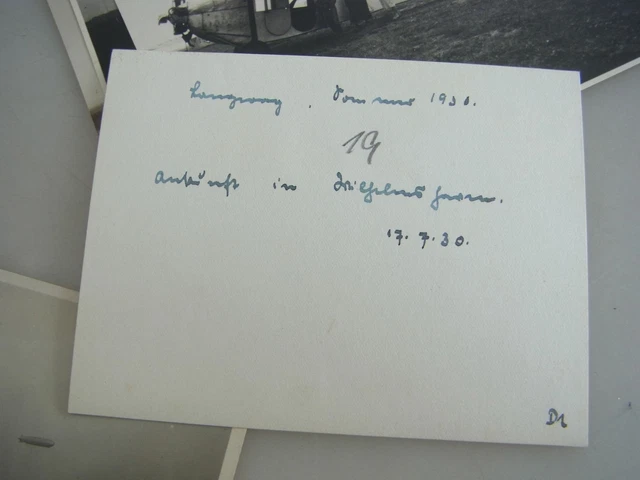 Langeoog, Sommer 1930.
19
Ankunft in Wilhelmshaven.
17.7.30.